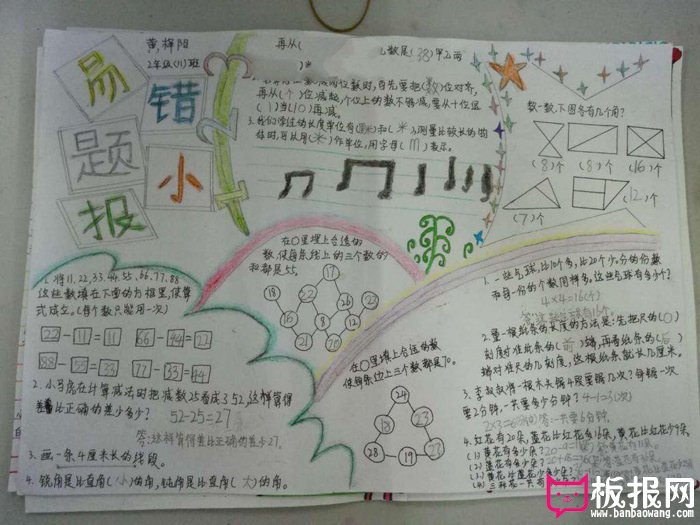 易错题小报
黄梓阳
2年级(11)班
再从(
乙数是(38)
位数时,首先要把(数)位对齐,
再从(个)位减起,个位上的数不够减,要从十位退
(1)当(10)再减。
3.我们学过的长度单位有(厘米)和(米),测量比较长的物
体时,可以用(米)作单位,用字母(m)表示。
数一数,下图各有几个角?
(8)个
(8)个
(16)个
(7)个
(12)个
1.将11,22,33,44,55,66,77,88
这些数填在下面的方框里,使算
式成立。(每个数只能用一次)
2.小马虎在计算减法时把减数25看成了52,这样算得
比正确的差少多少?
52-25=27
答:这样算得差比正确的差少27。
3.画一条4厘米长的线段。
4.锐角是比直角(小)的角,钝角是比直角(大)的角。
在○里填上合适的
数,使每条线上的三个数的
和都是55。
17
22
18
16
21
20
在○里填上合适的数
使每条边上三个数都是70。
24
22
23
28
19
1.一些气球,比10个多,比20个少。分的份数
和每一份的个数同样多。这些气球有多少个?
4×4=16(个)
2.量一根纸条的长度的方法是:先把尺的(0)
刻度对准纸条的(前)端,再看纸条的(后)
端对准尺的几刻度,这根纸条就长几厘米。
3.李叔叔将一根木头锯4段要锯几次?每锯一次
要2分钟,一共要多少分钟?
4-1=3(次)
2×3=6(分钟)
答:一共要6分钟。
4.红花有20朵,蓝花比红花多16朵,黄花比红花少9朵
(1)黄花有多少朵?
(2)蓝花有多少朵?
板报网
www.banbaowang.com